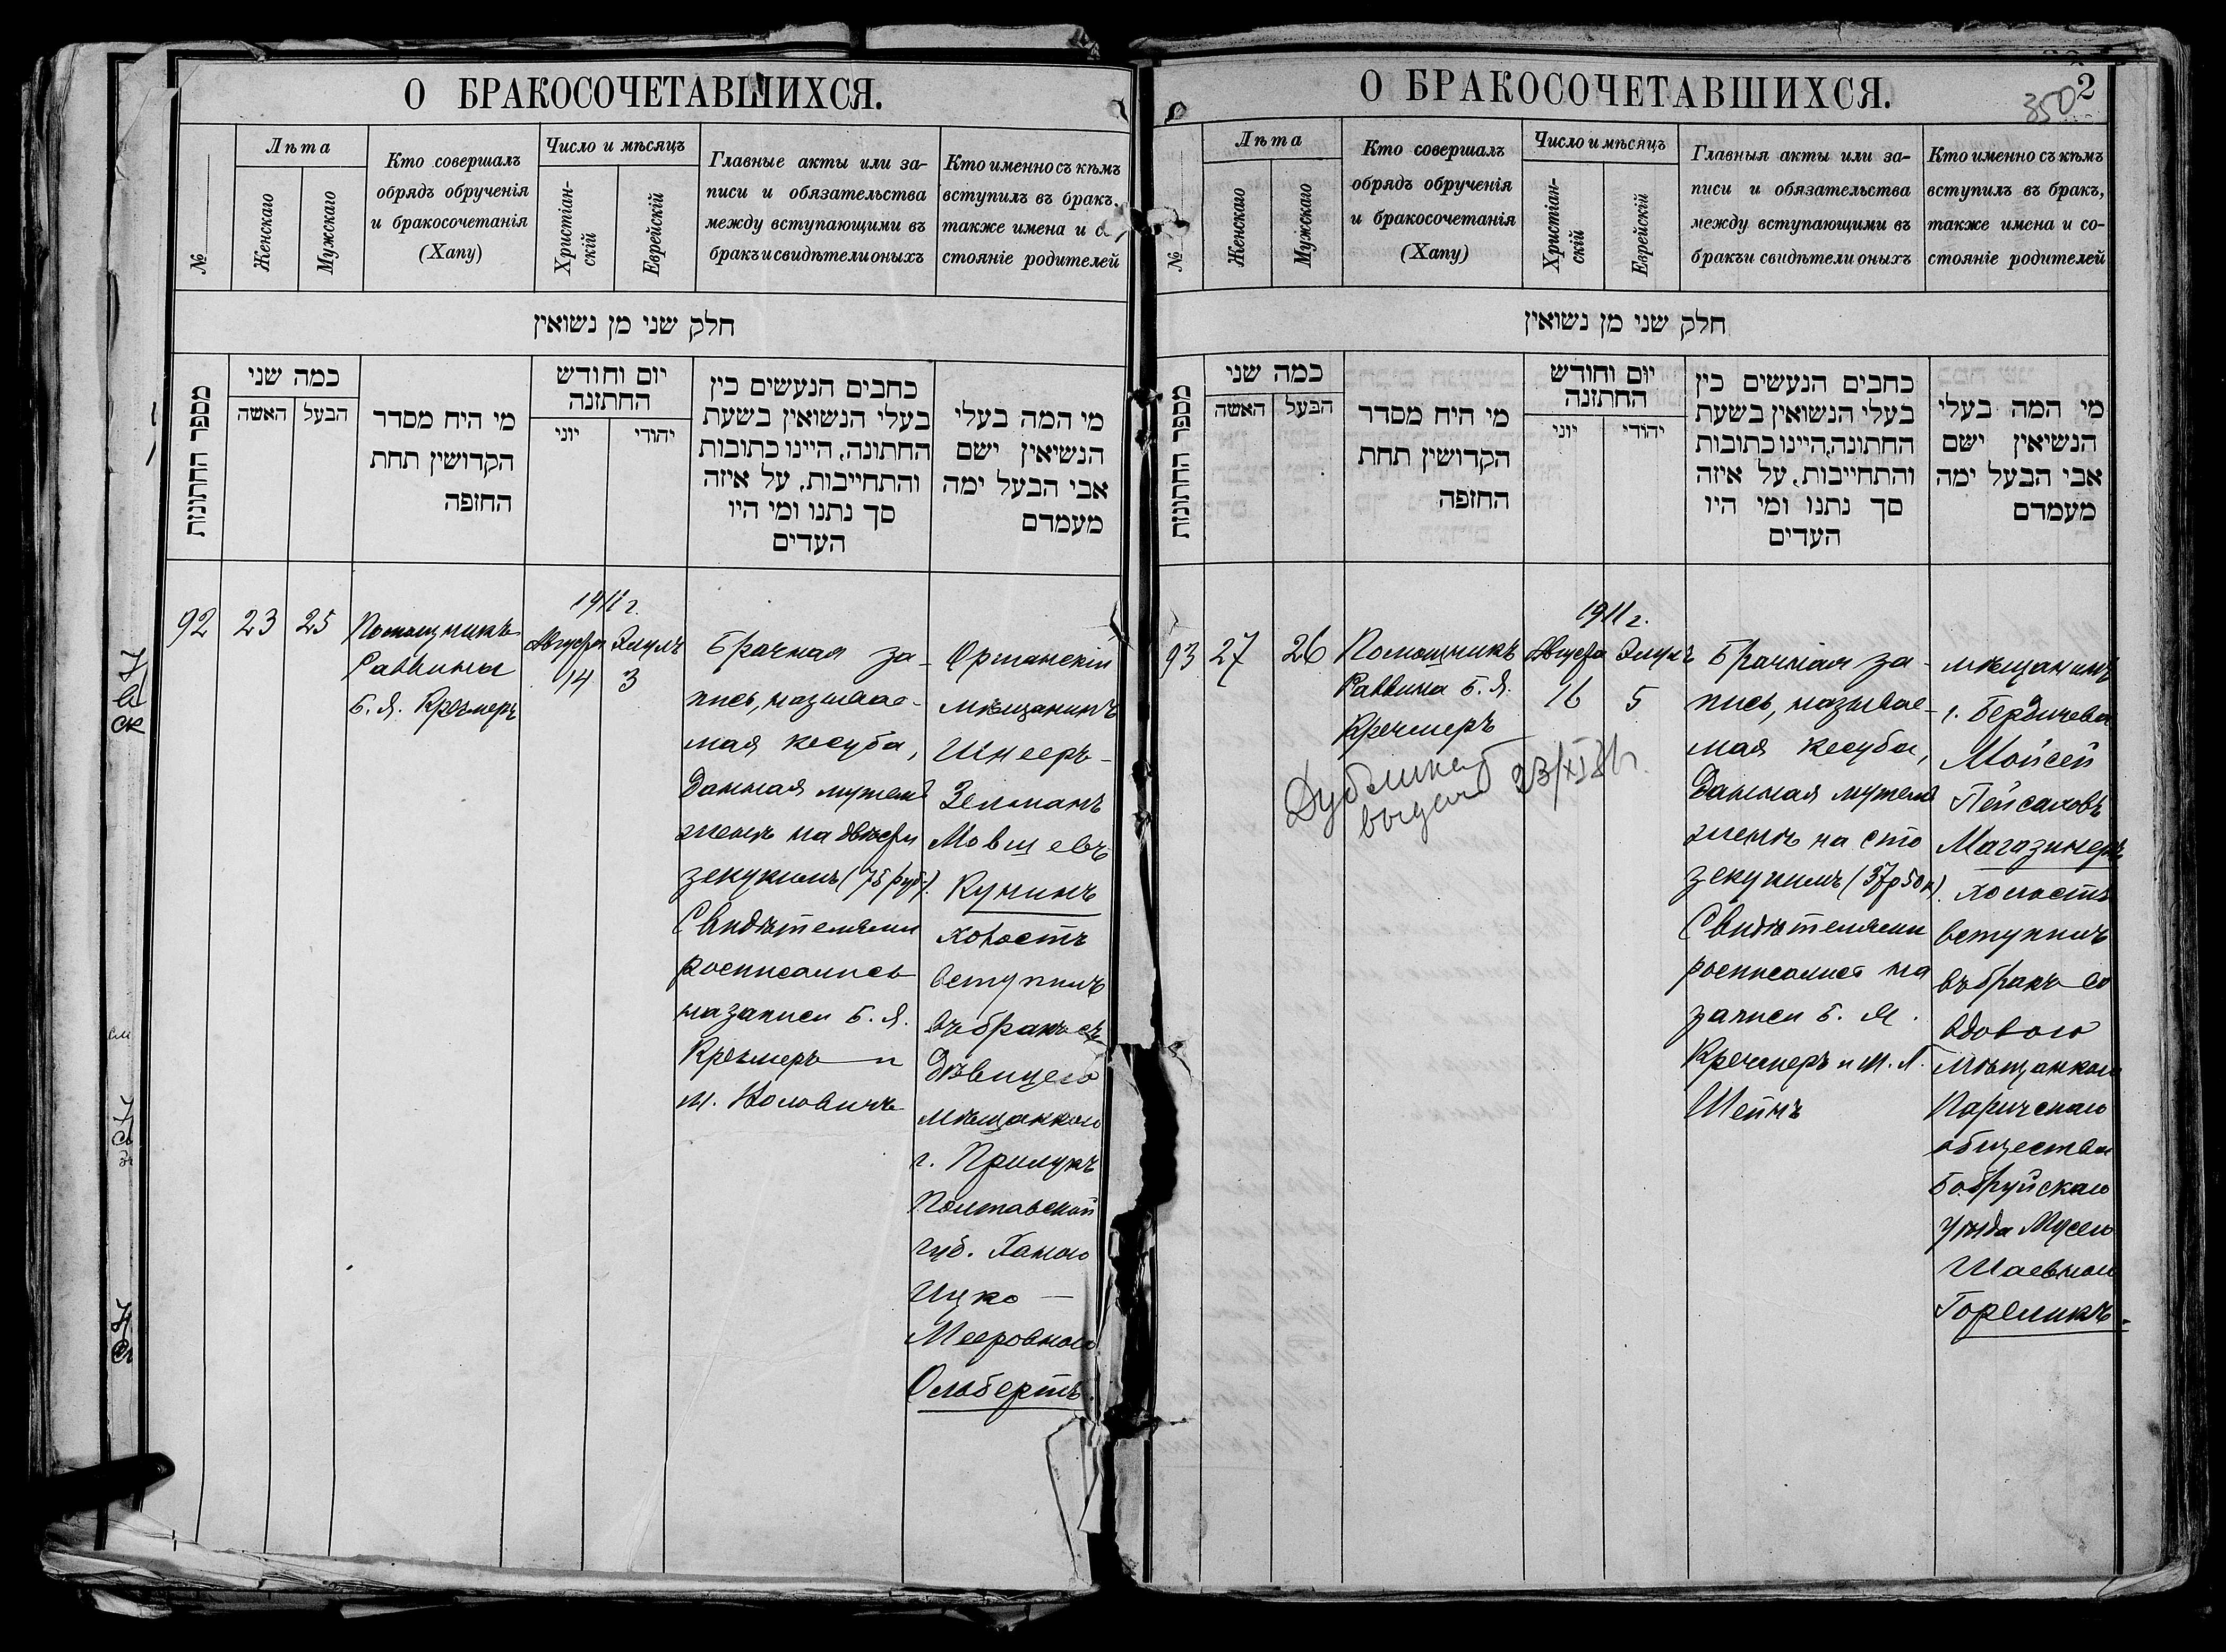 О БРАКОСОЧЕТАВШИХСЯ.
№
Лѣта
Женскаго
Мужскаго
Кто совершалъ
обрядъ обрученія
и бракосочетанія
(Хапу)
Число и мѣсяцъ
Христіан-
скій
Еврейскій
Главные акты или за-
писи и обязательства
между вступающими въ
бракъ и свидѣтели оныхъ
Кто именно съ кѣмъ
вступилъ въ бракъ,
также имена и с
стояніе родителей
חלק שני מן נשואין
מספר החתונות
כמה שני
האשה
הבעל
מי היח מסדר
הקדושין תחת
החופה
יום וחודש
החתונה
יוני
יהודי
כתבים הנעשים בין
בעלי הנשואין בשעת
החתונה, היינו כתובות
והתחייבות, על איזה
סך נתנו ומי היו
העדים
מי המה בעלי
הנשיאין ישם
אבי הבעל ימה
מעמדם
92
23
25
Помощникъ
Раввина
Б. Я. Кречмеръ
1911 г.
Августа
14
Элулъ
3
Брачная за-
пись, называе-
мая кесуба,
данная мужемъ
женѣ на двѣсти
зекукимъ (75 руб.).
Свидѣтелями
росписались
на записи Б. Я.
Кречмеръ и
М. Воловичъ
Оршанскій
мѣщанинъ
Шнееръ-
Зелманъ
Мовшевъ
Кунинъ
холостъ
вступилъ
въ бракъ съ
дѣвицею
мѣщанкою
г. Прилукъ
Полтавской
губ. Ханою
Ицко-
Мееровною
Ольбертъ.
О БРАКОСОЧЕТАВШИХСЯ.
2
350
№
Лѣта
Женскаго
Мужскаго
Кто совершалъ
обрядъ обрученія
и бракосочетанія
(Хапу)
Число и мѣсяцъ
Христіан-
скій
Еврейскій
Главныя акты или за-
писи и обязательства
между вступающими въ
бракъ и свидѣтели оныхъ
Кто именно съ кѣмъ
вступилъ въ бракъ,
также имена и со-
стояніе родителей
חלק שני מן נשואין
מספר החתונות
כמה שני
האשה
הבעל
מי היח מסדר
הקדושין תחת
החופה
יום וחודש
החתונה
יוני
יהודי
כתבים הנעשים בין
בעלי הנשואין בשעת
החתונה, היינו כתובות
והתחייבות, על איזה
סך נתנו ומי היו
העדים
מי המה בעלי
הנשיאין ישם
אבי הבעל ימה
מעמדם
93
27
26
Помощникъ
Раввина Б. Я.
Кречмеръ
Дубликат
выдан 23/XI
1911 г.
Августа
16
Элулъ
5
Брачная за-
пись, называе-
мая кесуба,
данная мужемъ
женѣ на сто
зекукимъ (37 р 50 к).
Свидѣтелями
росписались на
записи Б. Я.
Кречмеръ и М. Л.
Шейнъ
мѣщанинъ
г. Бердичева
Мойсей
Пейсаховъ
Магазинеръ
холостъ
вступилъ
въ бракъ со
вдовою
мѣщанкою
Паричскаго
общества
Бобруйскаго
уѣзда Мусею
Шаевною
Гореликъ.